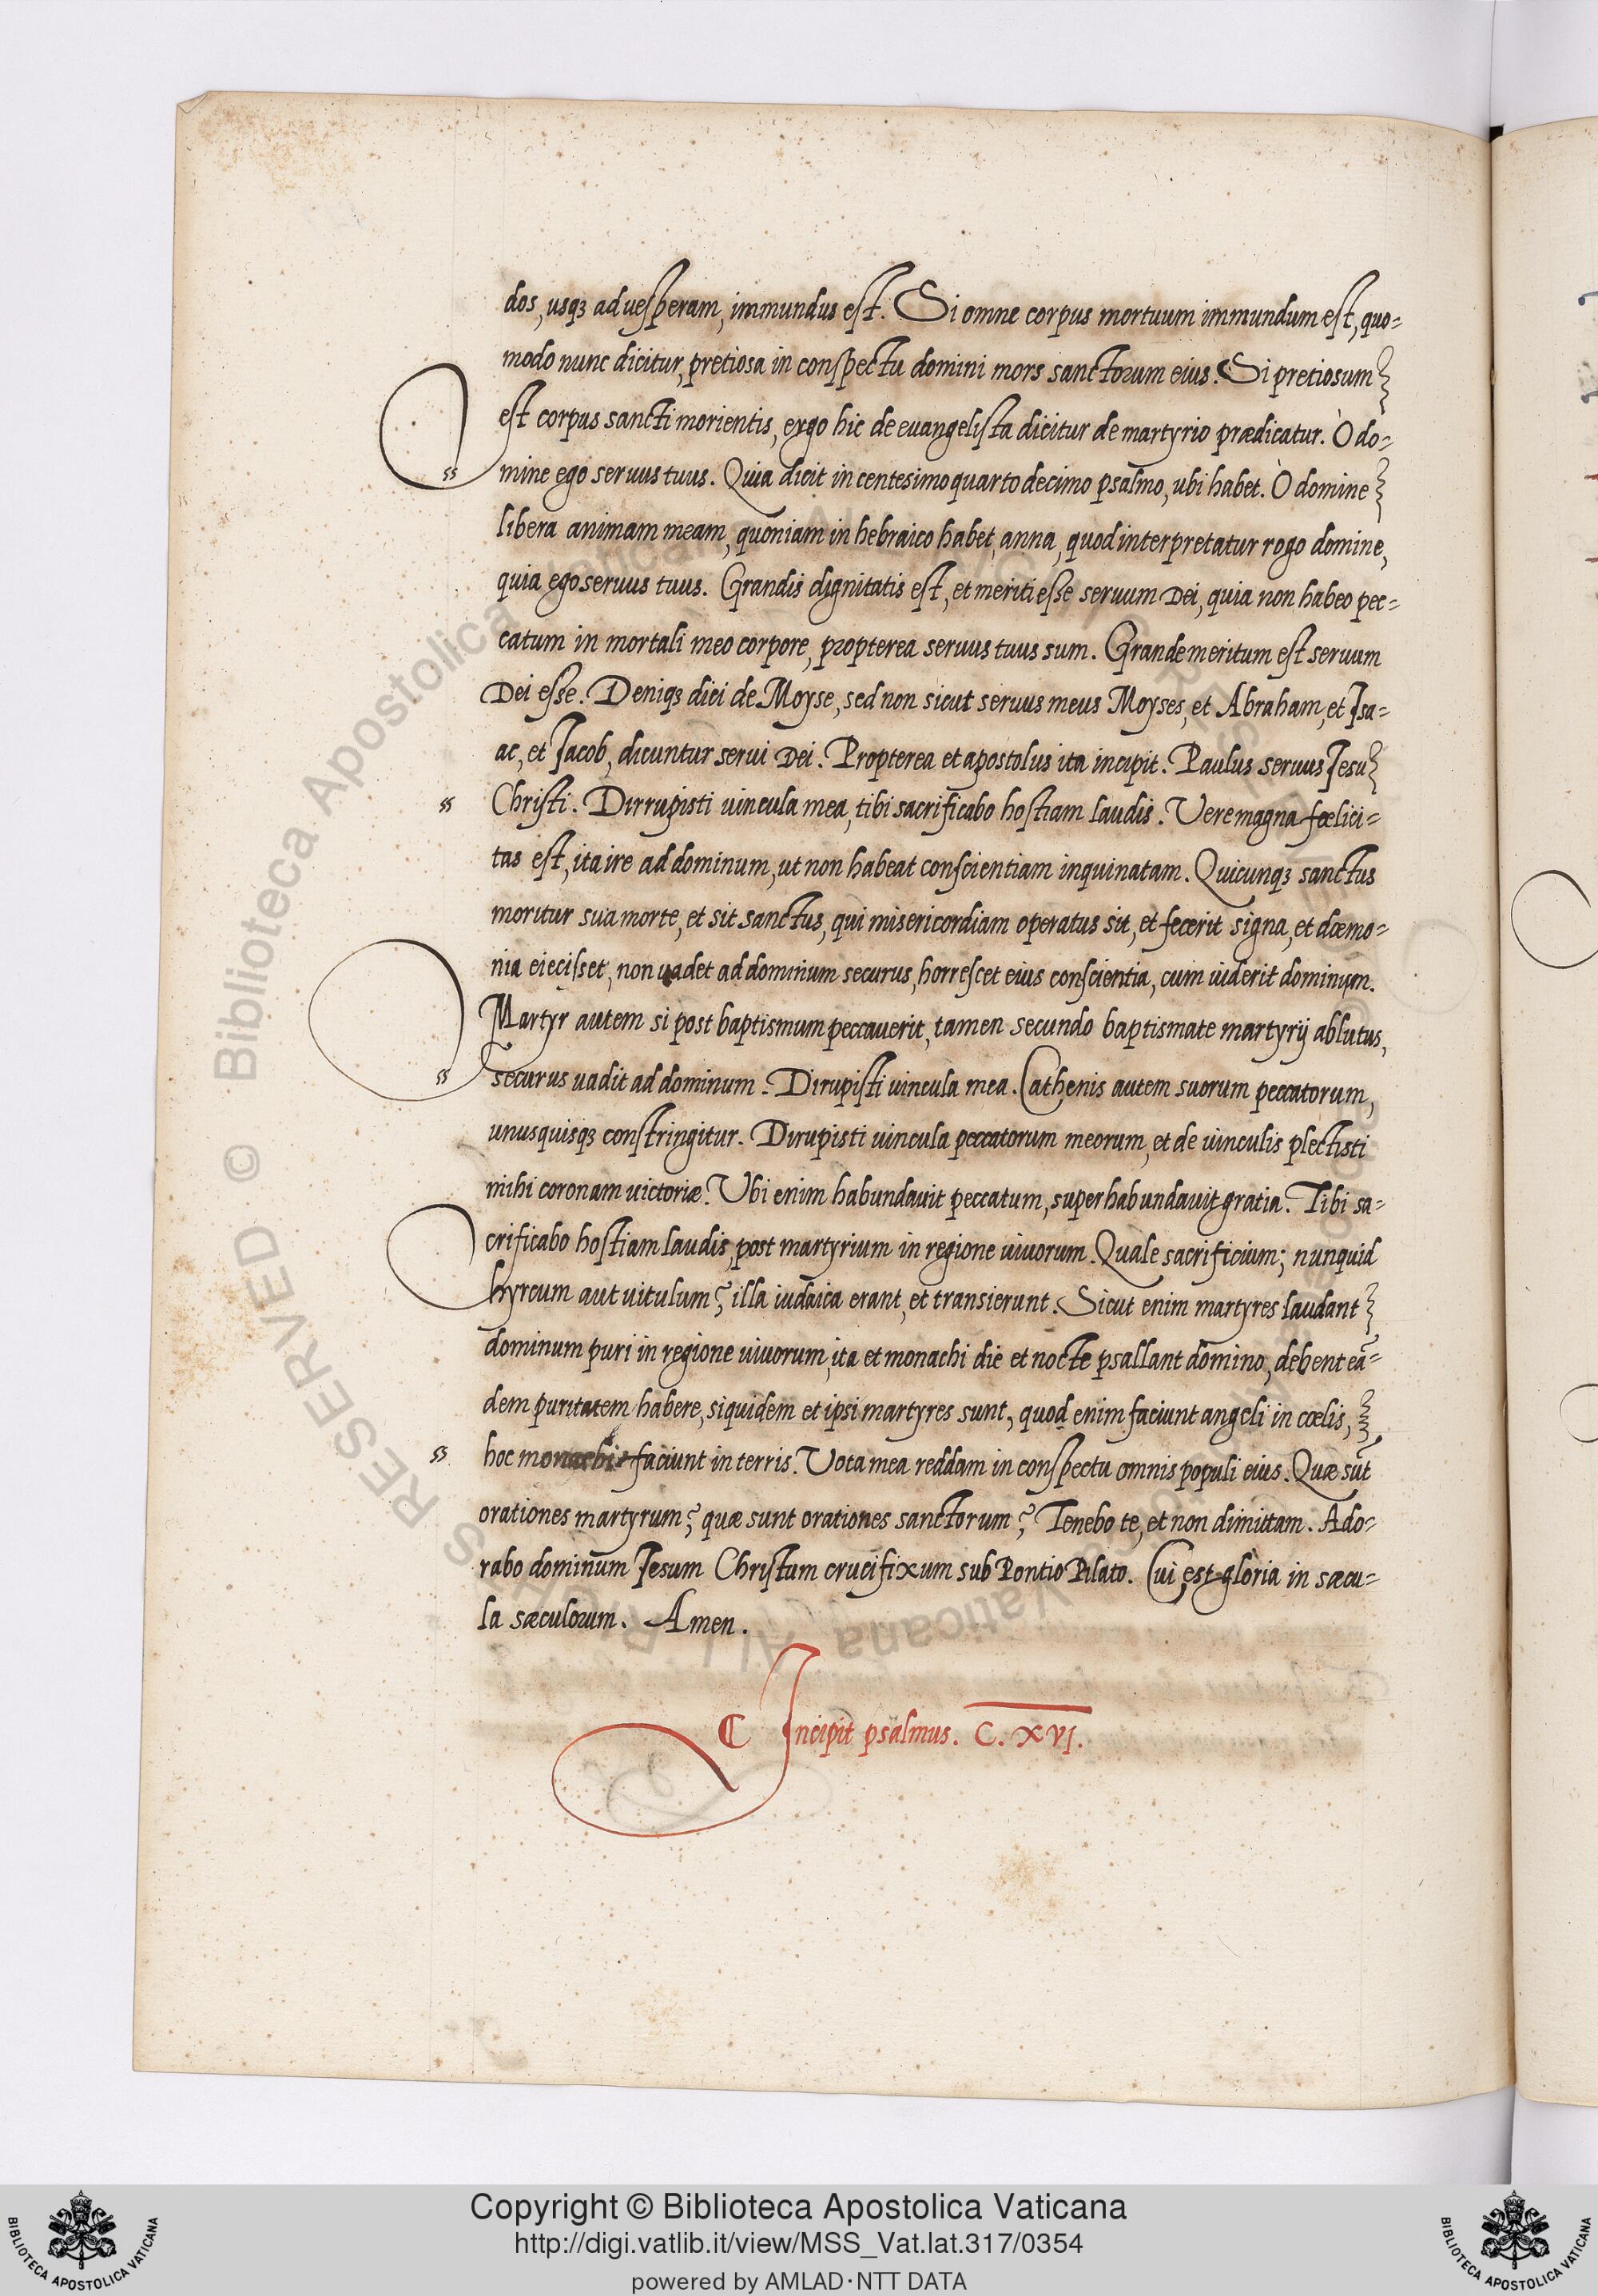 dos, usqꝫ ad uesperam, immundus est. Si omne corpus mortuum immundum est, quo=
modo nunc dicitur, pretiosa in conspectu domini mors sanctorum eius. Si pretiosum
est corpus sancti morientis, ergo hic de euangelista dicitur de martyrio prædicatur. Ò do=
mine ego seruus tuus. Quia dicit in centesimo quarto decimo psalmo, ubi habet. Ò domine
libera animam meam, quoniam in hebraico habet, anna, quod interpretatur rogo domine,
quia ego seruus tuus. Grandis dignitatis est, et meriti esse seruum Dei, quia non habeo pec=
catum in mortali meo corpore, propterea seruus tuus sum. Grande meritum est seruum
Dei esse. Deniqꝫ dici de Moyse, sed non sicut seruus meus Moyses, et Abraham, et Isa=
ac, et Jacob, dicuntur serui Dei. Propterea et apostolus ita incipit. Paulus seruus Jesu
Christi. Dirrupisti uincula mea, tibi sacrificabo hostiam laudis. Vere magna fœlici=
tas est, ita ire ad dominum, ut non habeat conscientiam inquinatam. Quicunqꝫ sanctus
moritur sua morte, et sit sanctus, qui misericordiam operatus sit, et fecerit signa, et dœmo=
nia eiecisset, non uadet ad dominum securus, horrescet eius conscientia, cum uiderit dominum.
Martyr autem si post baptismum peccauerit, tamen secundo baptismate martyrij ablutus,
securus uadit ad dominum. Dirupisti uincula mea. Cathenis autem suorum peccatorum,
unusquisqꝫ constringitur. Dirupisti uincula peccatorum meorum, et de uinculis plectisti
mihi coronam uictoriæ. Ubi enim habundauit peccatum, superhabundauit gratia. Tibi sa=
crificabo hostiam laudis, post martyrium in regione uiuorum. Quale sacrificium; nunquid
hyrcum aut uitulum? illa iudaica erant, et transierunt. Sicut enim martyres laudant
dominum puri in regione uiuorum, ita et monachi die et nocte psallant domino, debent eā=
dem puritatem habere, siquidem et ipsi martyres sunt, quod enim faciunt angeli in cœlis,
hoc monachi faciunt in terris. Vota mea reddam in conspectu omnis populi eius. Quæ sūt
orationes martyrum? quæ sunt orationes sanctorum? Tenebo te, et non dimittam. Ado=
rabo dominum Jesum Christum crucifixum sub Pontio Pilato. Cui est gloria in sæcu=
la sæculorum. Amen.
¶ Incipit psalmus. C. XVI.
Copyright © Biblioteca Apostolica Vaticana
http://digi.vatlib.it/view/MSS_Vat.lat.317/0354
powered by AMLAD·NTT DATA
BIBLIOTECA APOSTOLICA VATICANA
BIBLIOTECA APOSTOLICA VATICANA